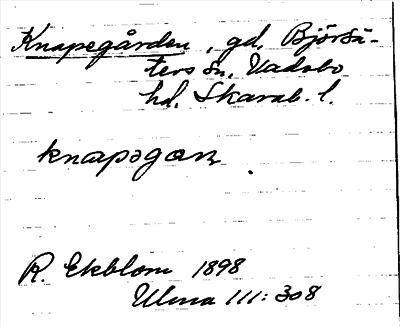 Knapegården, gd, Björsä-
ters sn, Vadsbo
hd, Skarab. l.
knapəgan
R. Ekblom 1898
Ulma 111:308